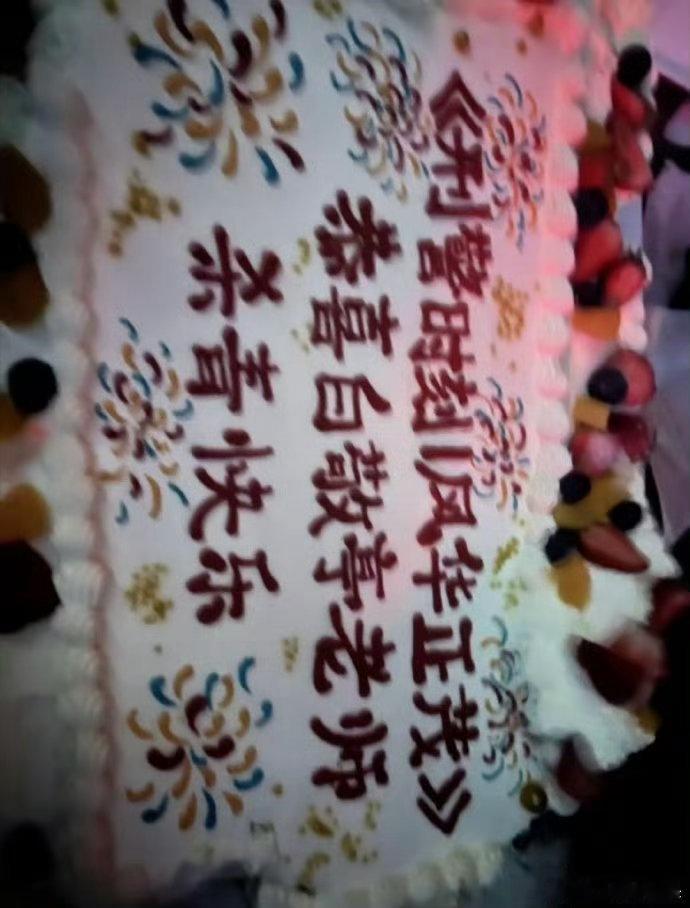 《刑警时刻|风华正茂》
恭喜白敬亭老师
杀青快乐